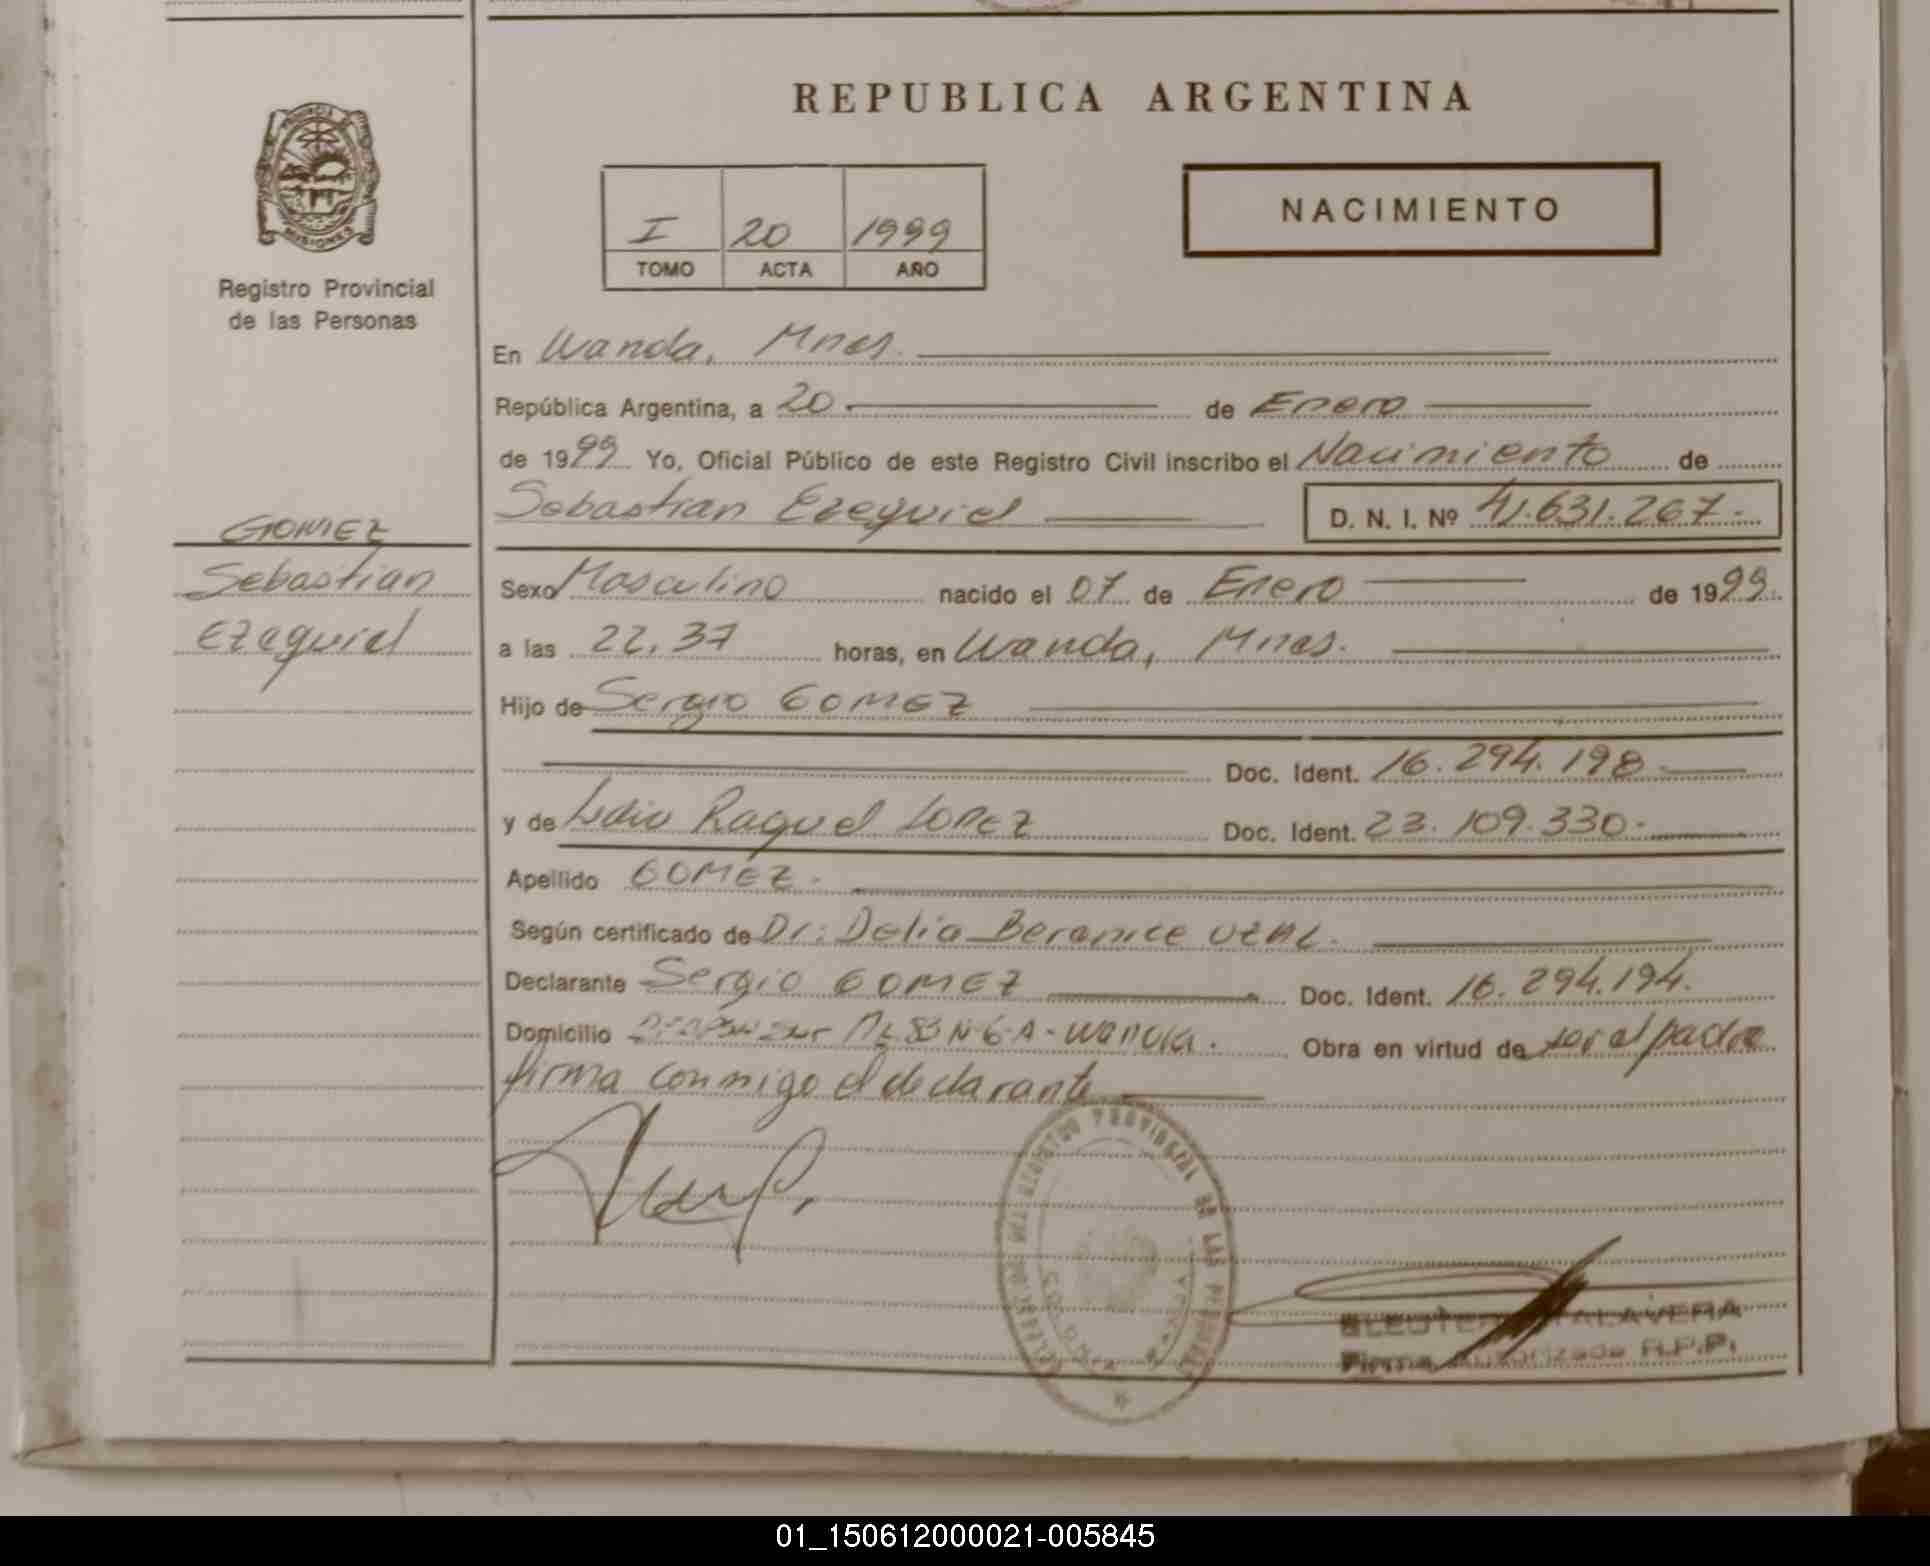 REPUBLICA ARGENTINA
PROVINCIA
MISIONES
Registro Provincial
de las Personas
I 20 1999
TOMO ACTA AÑO
NACIMIENTO
En Wanda, Mnes.
República Argentina, a 20 de Enero
de 1999 Yo, Oficial Público de este Registro Civil inscribo el Nacimiento de
Sebastian Ezequiel D. N. I. Nº 41.631.267.-
GOMEZ
Sebastian
Ezequiel
Sexo Masculino nacido el 07 de Enero de 1999.
a las 22,37 horas, en Wanda, Mnes.
Hijo de Sergio GOMEZ
Doc. Ident. 16.294.198
y de Lidia Raquel LOPEZ Doc. Ident. 23.109.330.
Apellido GOMEZ.
Según certificado de Dr. Delia Berenice
Declarante Sergio GOMEZ Doc. Ident. 16.294.194.
Domicilio Wanda. Obra en virtud de ser el padre
firma conmigo el declarante
REGISTRO PROVINCIAL DE LAS PERSONAS
WANDA
TALAVERA
Firma Autorizada R.P.P.
01_150612000021-005845